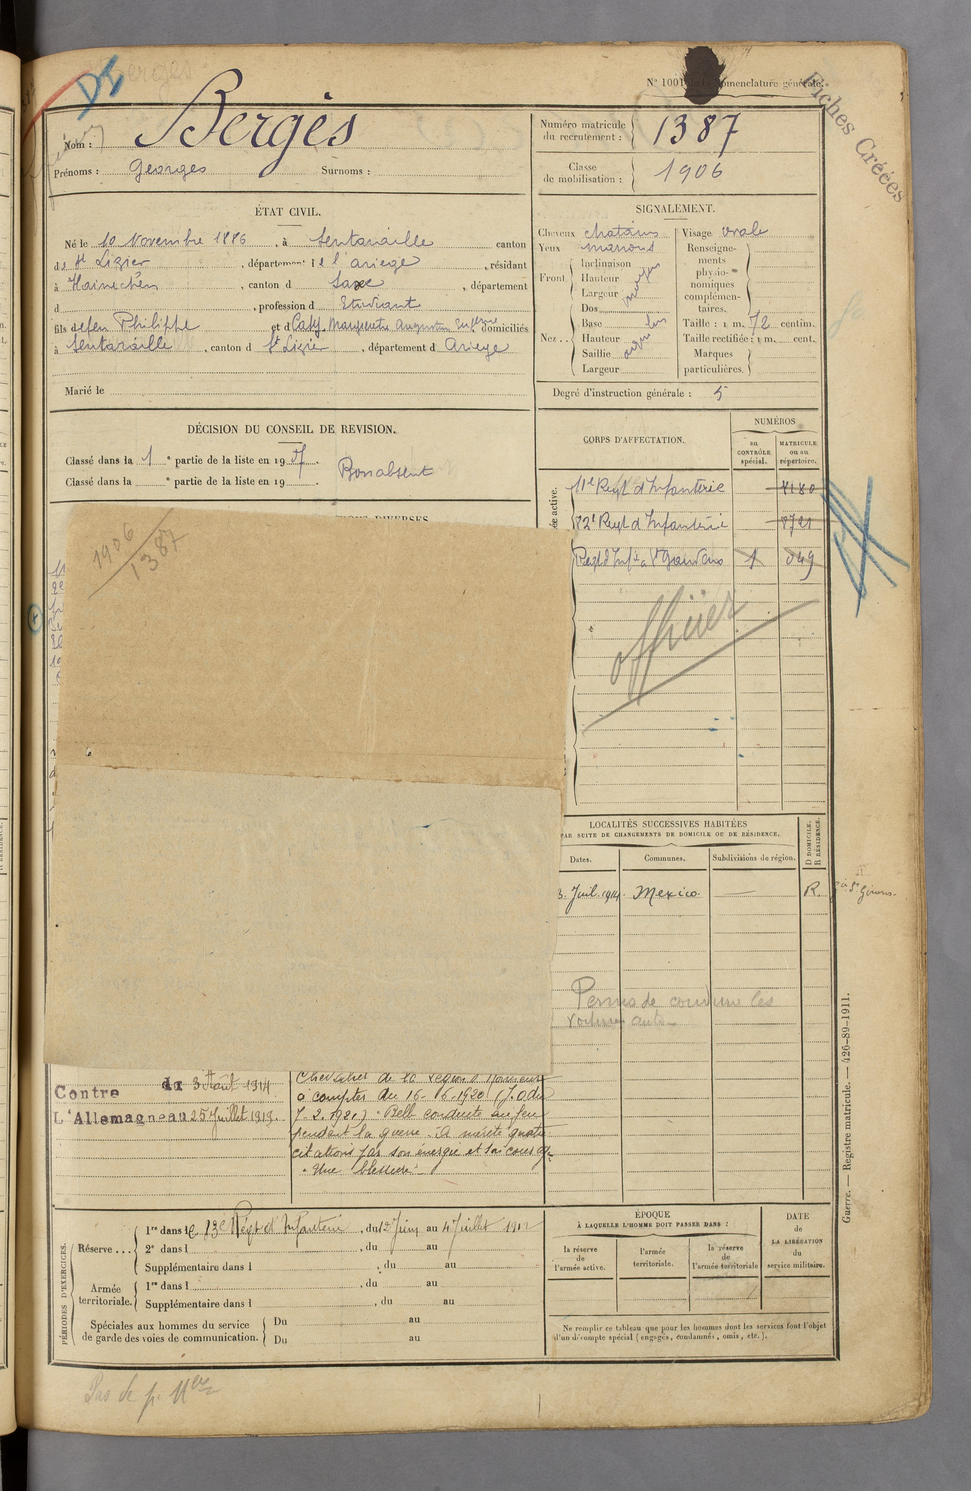 N° 1001 Nomenclature générale.
Fiches Créées
Nom : Bergès
Prénoms : Georges Surnoms :
Numéro matricule du recrutement : 1387
Classe de mobilisation : 1906
ÉTAT CIVIL.
Né le 10 Novembre 1886, à Sentaraille canton
de St Lizier, département de l'Ariege, résidant
à Hainechen, canton d Saxe, département
d , profession d Etudiant
fils de feu Philippe et d Marguerite Augustine Eugénie domiciliés
à Sentaraille, canton d St Lizier, département d Ariege
Marié le
SIGNALEMENT.
Cheveux chatains
Yeux marrons
Front
Inclinaison
Hauteur
Largeur
moyen
Nez
Dos
Base
Hauteur
Saillie
Largeur
Visage ovale
Renseignements physionomiques complémentaires.
Taille : 1 m. 72 centim.
Taille rectifiée : 1 m. cent.
Marques particulières.
Degré d'instruction générale : 5
DÉCISION DU CONSEIL DE REVISION.
Classé dans la 1e partie de la liste en 1907.
Classé dans la e partie de la liste en 19
Bon absent
CORPS D'AFFECTATION.
NUMÉROS
au CONTRÔLE spécial.
MATRICULE ou au répertoire.
11e Regt d'Infanterie 8180
82e Regt d'Infanterie 8721
Regt d'Infie à St Gaudens 1 049
officier
1906
1387
LOCALITÉS SUCCESSIVES HABITÉES
PAR SUITE DE CHANGEMENTS DE DOMICILE OU DE RÉSIDENCE.
Dates. Communes. Subdivisions de région. D DOMICILE. R RÉSIDENCE.
3 Juil. 1914 Mexico — R.
à St Girons.
Permis de conduire les
voitures auto
Contre du 3 Août 1914
L'Allemagne au 25 Juillet 1919.
Chevalier de la Légion d'Honneur
à compter du 16-6-1920 (J.O du
7-2-1921) "Belle conduite au feu
pendant la guerre. A mérité quatre
citations par son énergie et son courage.
Une blessure"
PÉRIODES D'EXERCICES.
Réserve
1re dans le 13e Regt d'Infanterie, du 12 Juin au 4 Juillet 1912
2e dans l , du au
Supplémentaire dans l , du au
Armée territoriale.
1re dans l , du au
Supplémentaire dans l , du au
Spéciales aux hommes du service de garde des voies de communication.
Du au
Du au
ÉPOQUE
À LAQUELLE L'HOMME DOIT PASSER DANS :
la réserve de l'armée active.
l'armée territoriale.
la réserve de l'armée territoriale
DATE de LA LIBÉRATION du service militaire.
Ne remplir ce tableau que pour les hommes dont les services font l'objet
d'un décompte spécial (engagés, condamnés, omis, etc.).
Guerre. — Registre matricule. — 426-89-1911.